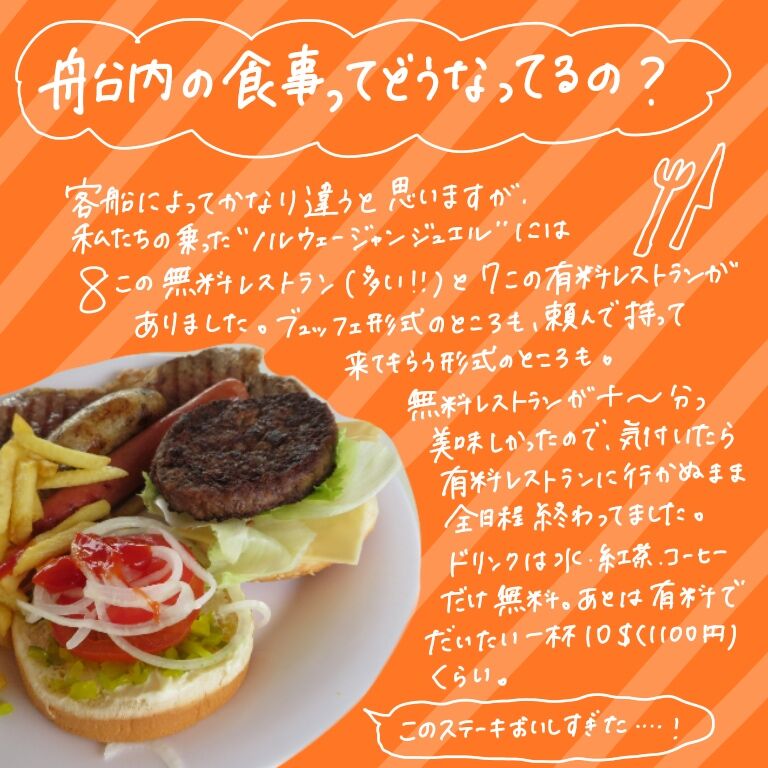 船内の食事ってどうなってるの？
客船によってかなり違うと思いますが、
私たちの乗った"ノルウェージャンジュエル"には
8この無料レストラン(多い!!)と7この有料レストランが
ありました。ブュッフェ形式のところも、頼んで持って
来てもらう形式のところも。
無料レストランが十〜分っ
美味しかったので、気付いたら
有料レストランに行かぬまま
全日程終わってました。
ドリンクは水・紅茶・コーヒー
だけ無料。あとは有料で
だいたい一杯10$(1100円)
くらい。
このステーキおいしすぎた....!